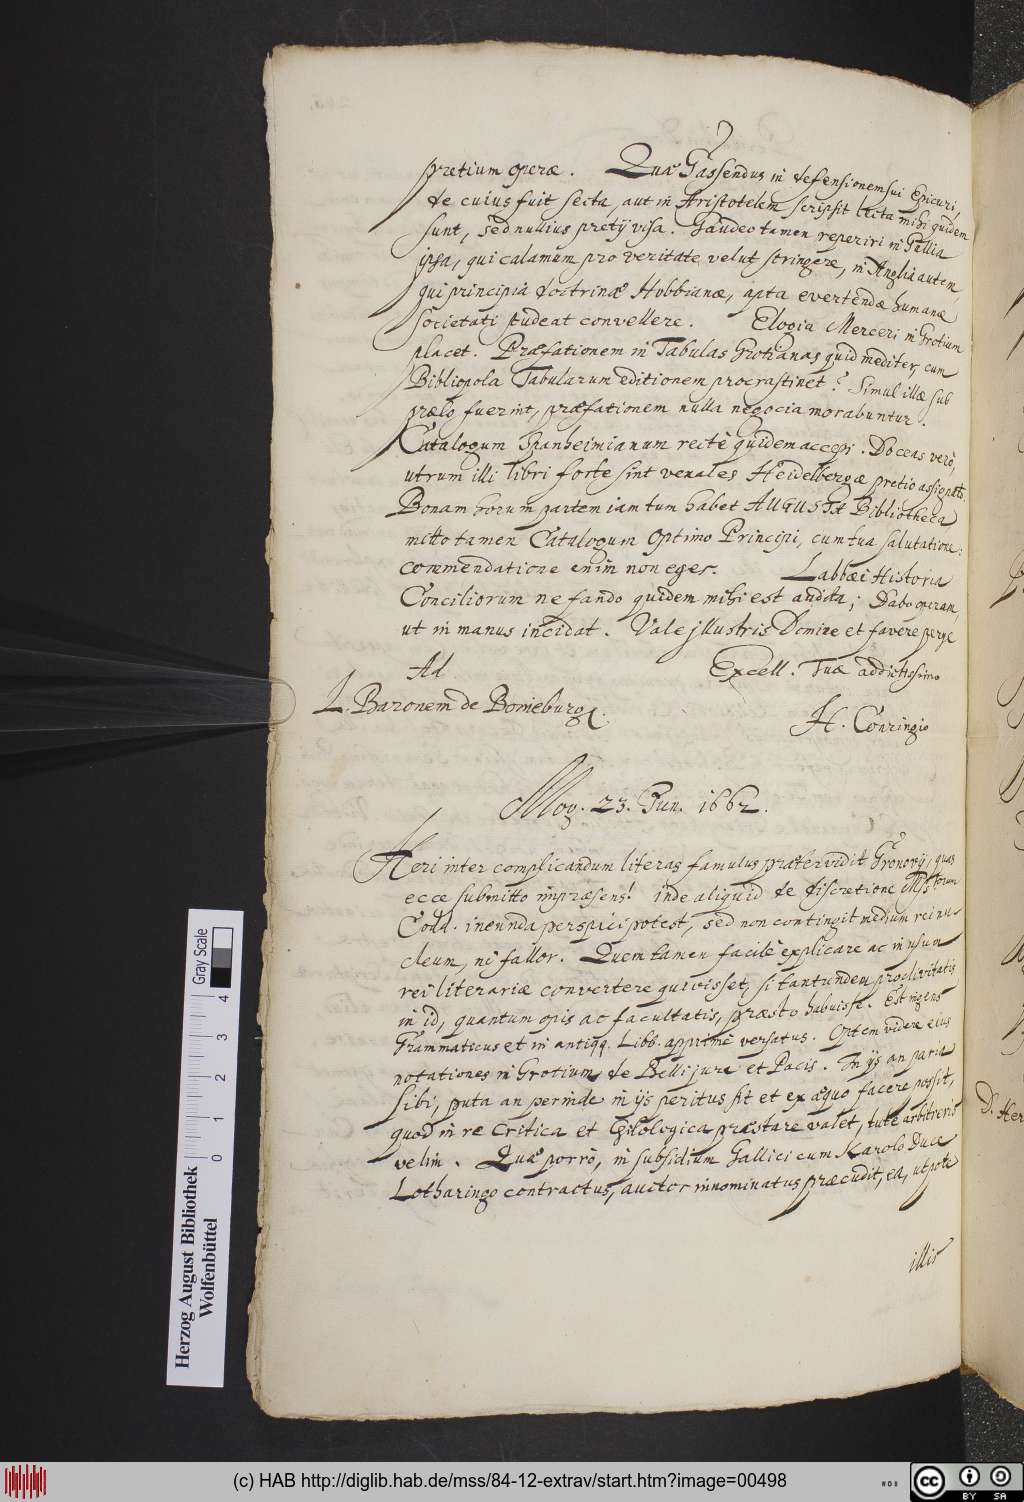 pretium operæ. Quæ Gassendus in defensionem sui Epicuri,
de cuius fuit secta, aut in Aristotelem scripsit lecta mihi quidem
sunt, sed nullius pretij visa. Gaudeo tamen reperiri in Gallia
ipsa, qui calamum pro veritate velut stringere, in Anglia autem,
qui principia doctrinæ Hobbianæ, apta evertendæ humanæ
societati studeat convellere. Elogia Merceri in Grotium
placet. Præfationem in Tabulas Grotianas quid mediter, cum
Bibliopola Tabularum editionem procrastinet? Simul illæ sub
prælo fuerint, præfationem nulla negocia morabuntur.
Catalogum Spanheimianum rectè quidem accepi. Doceas verò,
utrum illi libri forte sint venales Heidelbergæ pretio assignato
Bonam horum partem iam tum habet AUGUSTA Bibliotheca
mitto tamen Catalogum Optimo Principi, cum tua salutatione:
commendatione enim non eges. Labbæi Historia
Conciliorum ne fando quidem mihi est audita; Dabo operam,
ut in manus incidat. Vale jllustris Domine et favere perge
Ad Excell. Tuæ addictissimo
L. Baronem de Boineburg.
H. Conringio
Mog. 23. Jun. 1662.
Heri inter complicandum literas famulus prætervidit Gronovij, quas
ecce submitto inpræsens! inde aliquid de discretione Mss torum
Codd. ineunda perspici potest, sed non contingit medium rei nu-
cleum, ni fallor. Quem tamen facilè explicare ac in usum
rei literariæ convertere quivisset, si tantundem proclivitatis
in id, quantum opis ac facultatis, præsto habuisset. Est ingens
Grammaticus et in antiqq. Libb. apprimè versatus. Optem videre eius
notationes in Grotium de Belli jure et Pacis. In ijs an paria
sibi, puta an perinde in ijs peritus sit et ex æquo facere possit,
quod in re Critica et Philologica præstare valet, tute arbitreris
velim. Quæ porrò, in subsidium Gallici cum Karolo Duce
Lotharingo contractus, auctor innominatus præcudit, ea, utpote
illis
D. Her
Herzog August Bibliothek
Wolfenbüttel
Gray Scale
0 1 2 3 4
(c) HAB http://diglib.hab.de/mss/84-12-extrav/start.htm?image=00498
cc BY SA